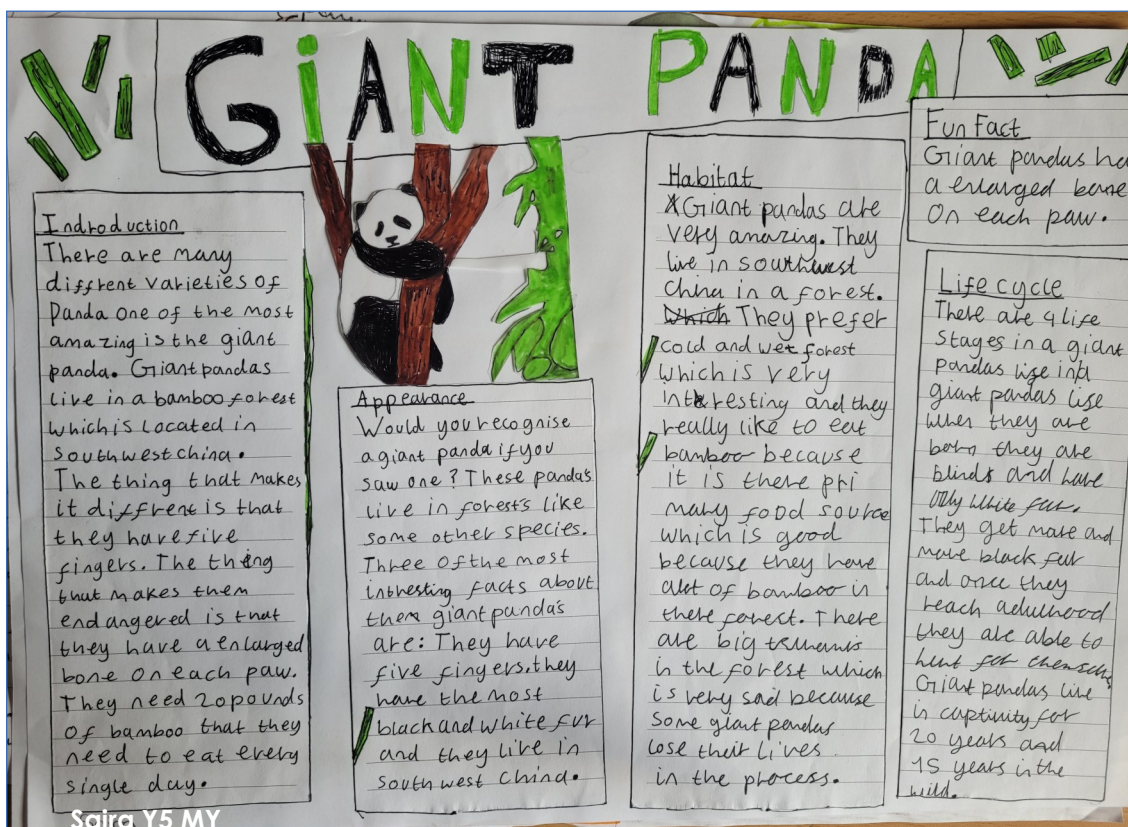 GiANT PANDA
Indroduction
There are many
diffrent varieties of
Panda one of the most
amazing is the giant
panda. Giant pandas
live in a bamboo forest
which is located in
southwest china.
The thing that makes
it diffrent is that
they have five
fingers. The thing
that makes them
endangered is that
they have a enlarged
bone on each paw.
They need 20 pounds
of bamboo that they
need to eat every
single day.
Appearance
Would you recognise
a giant panda if you
saw one? These panda's
live in forest's like
some other species.
Three of the most
inthresting facts about
them giant panda's
are: They have
five fingers. they
have the most
black and white fur
and they live in
southwest China.
Habitat
Giant pandas are
very amazing. They
live in southwest
china in a forest.
Which They prefer
cold and wet forest
which is very
intresting and they
really like to eat
bamboo because
it is there pri
mary food source
which is good
because they have
alot of bamboo in
there forest. There
are big
in the forest which
is very sad because
some giant pandas
lose their lives
in the process.
Fun Fact
Giant pandas ha
a enlarged bone
on each paw.
Life cycle
There are 4 life
stages in a giant
pandas life
giant pandas life
when they are
born they are
blinds and have
only white fur.
They get more and
more black fur
and once they
reach adulthood
they are able to
hunt for themselves
Giant pandas live
in captinity for
20 years and
15 years in the
wild.
Saira Y5 MY